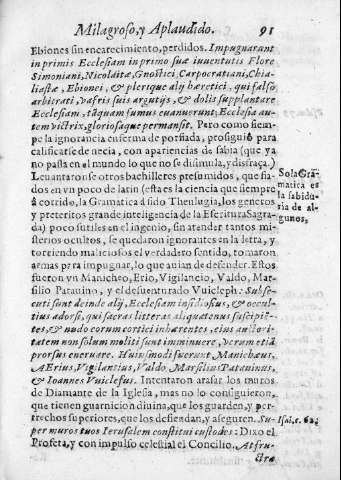 Milagroso, y Aplaudido. 91
Ebiones sin encarecimiento, perdidos. Impugnarunt
in primis Ecclesiam in primo suæ iuuentutis Flore
Simoniani, Nicolaitæ, Gnostici, Carpocratiani, Chia-
liastæ, Ebionei, & plerique alij hæretici, qui falso
arbitrati, vafris suis argutijs, & dolis supplantare
Ecclesiam, tãquam fumus euanuerunt; Ecclesia au-
tem victrix, gloriosaque permansit. Pero como siem-
pe la ignorancia enferma de porfiada, prosiguiò para
calificarse de necia, con apariencias de sabia (que ya
no passa en el mundo lo que no se disimula, y disfraça.)
Leuantaronse otros bachilleres presumidos, que fia-
dos en vn poco de latin (esta es la ciencia que siempre
à corrido, la Gramatica à sido Theulugia, los generos
y preteritos grande inteligencia de la Escritura Sagra-
da) poco sutiles en el ingenio, sin atender tantos mi-
sterios ocultos, se quedaron ignorantes en la letra, y
torciendo maliciosos el verdadero sentido, tomaron
armas para impugnar, lo que auian de defender. Estos
fueron vn Manicheo, Erio, Vigilancio, Valdo, Mar-
silio Patauino, y el desuenturado Vuicleph: Subse-
cuti sunt deinde alij, Ecclesiam insidiosius, & occul-
tius adorsi, qui sacras litteras aliquatenus suscipiẽ-
tes, & nudo eorum cortici inhærentes, eius auctori-
tatem non solum moliti sunt imminuere, verum etiã
prorsus eneruare. Huiusmodi fuerunt, Manichæus,
AErius, Vigilantius, Valdo, Marsilius Patauinus,
& Ioannes Vuiclefus. Intentaron arasar los muros
de Diamante de la Iglesia, mas no lo consiguieron,
que tienen guarnicion diuina, que los guarden, y per-
trechos superiores, que los defiendan, y aseguren. Su-
per muros tuos Ierusalem constitui custodes: Dixo el
Profeta, y con impulso celestial el Concilio. Atfru-
ctra
Sola Grã-
matica es
la sabidu-
ria de al-
gunos,
Isai. c. 62.